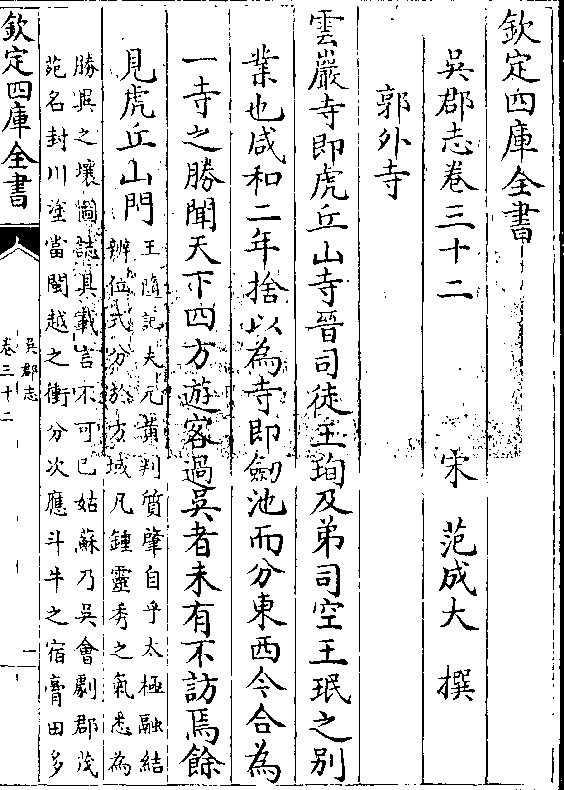 欽定四庫全書
吳郡志卷三十二
宋 范成大 撰
郭外寺
雲巖寺即虎丘山寺晉司徒王珣及弟司空王珉之別
業也咸和二年捨以為寺即劔池而分東西今合為
一寺之勝聞天下四方遊客過吳者未有不訪焉餘
見虎丘山門
王隨記夫元黄判質肇自乎太極融結
辨位式分於方域凡鍾靈秀之氣悉為
勝異之壤圖誌具載言不可已姑蘇乃吳會劇郡茂
苑名封川塗當閩越之衝分次應斗牛之宿膏田多
欽定四庫全書
吳郡志
卷三十二
一